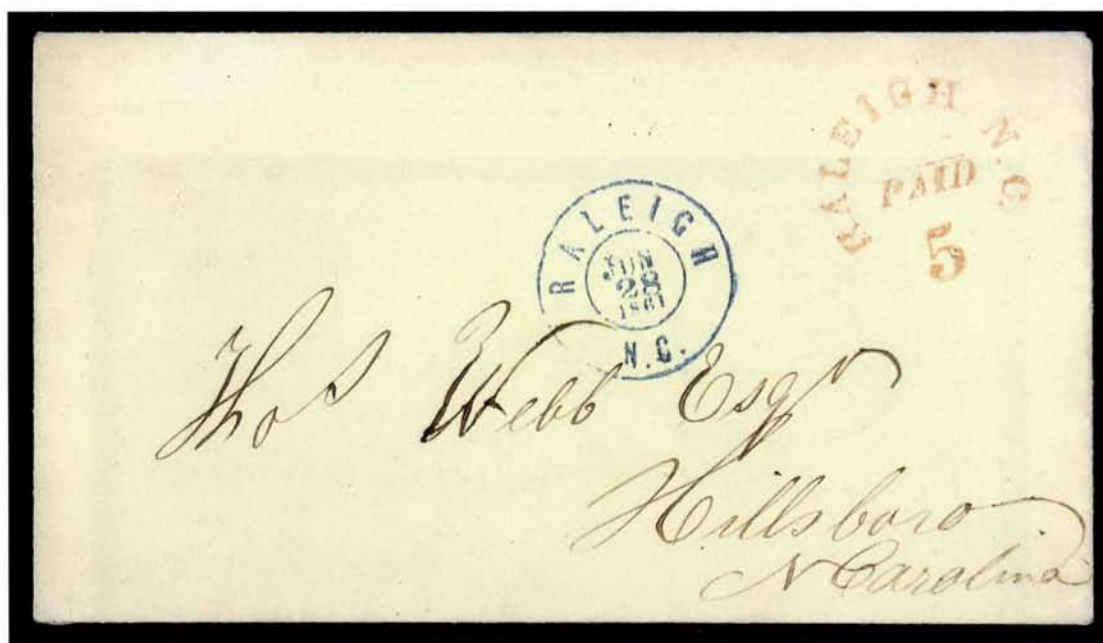 RALEIGH N.C.
PAID
5
RALEIGH
JUN
28
1861
N.C.
Thos Webb Esqr
Hillsboro
N Carolina